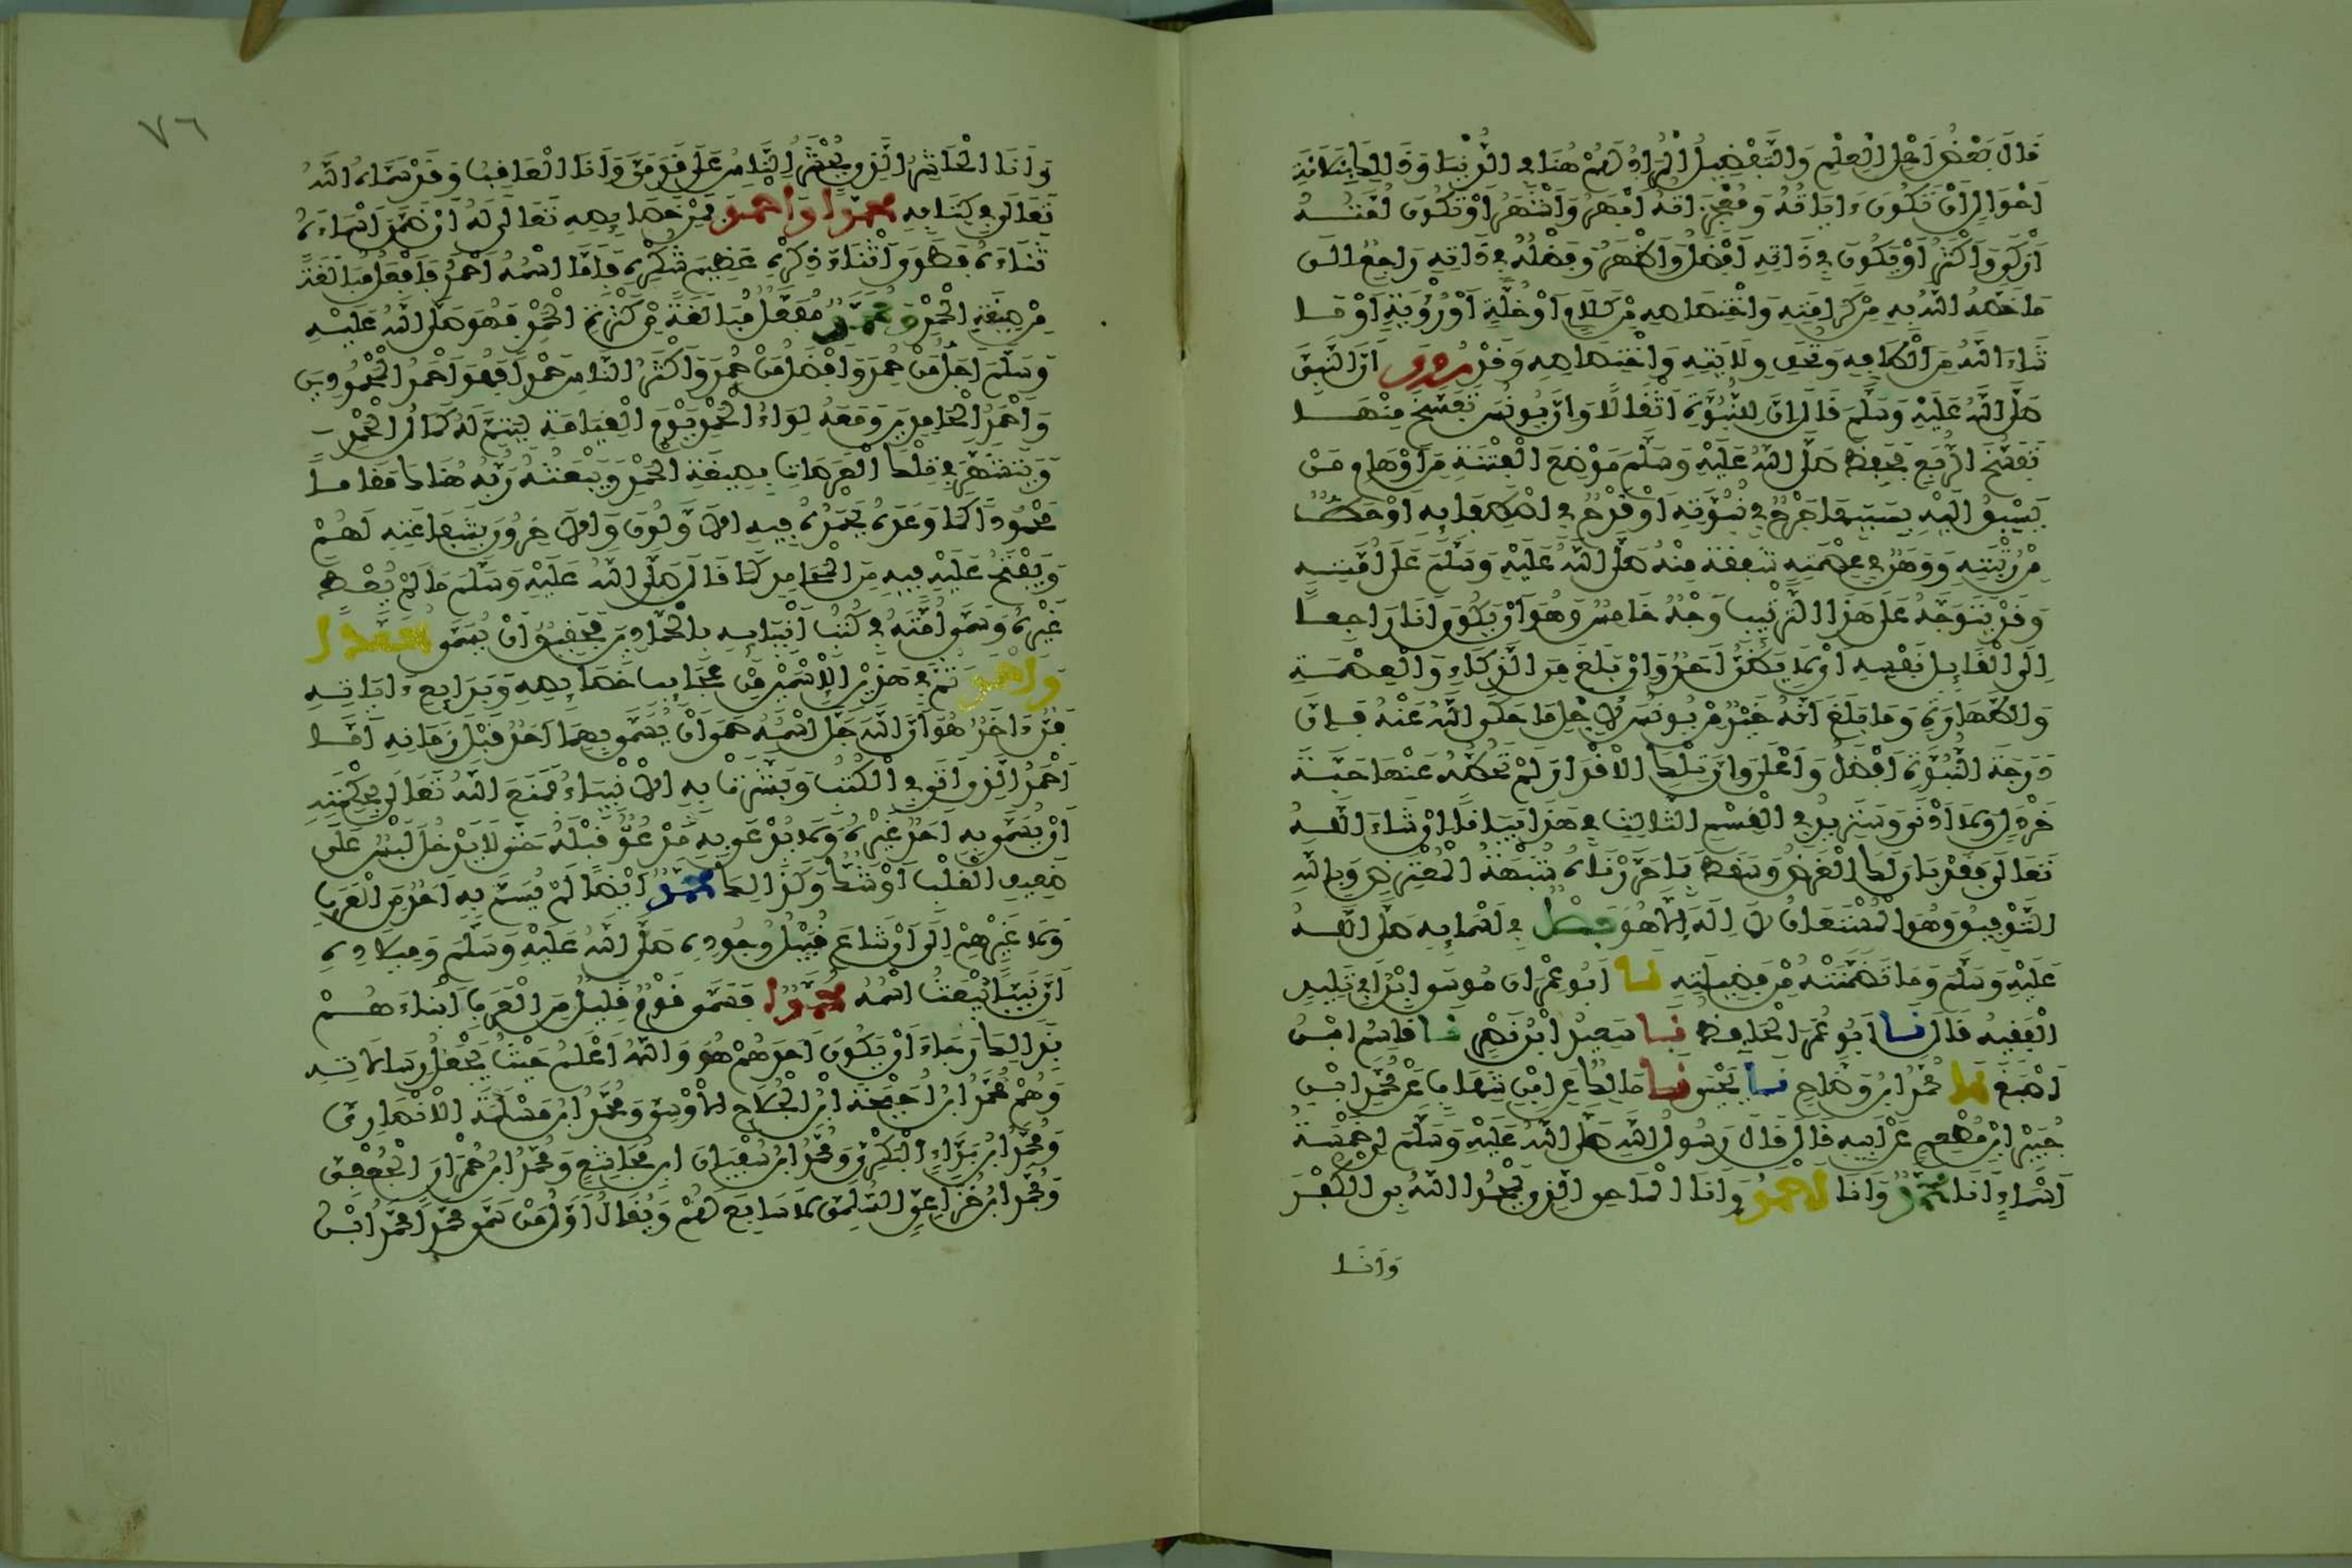 قَالَ بَعْضُ أَهْلِ الْعِلْمِ وَالتَّفْضِيلُ الْمُرَادُ لَهُمْ هُنَا فِي الدُّنْيَا وَذَٰلِكَ بِثَلَاثَةِ
أَحْوَالٍ أَنْ تَكُونَ ءَايَاتُهُ وَمُعْجِزَاتُهُ أَبْهَرُ وَأَشْهَرُ أَوْ تَكُونَ أُمَّتُهُ
أَزْكَى وَأَكْثَرُ أَوْ يَكُونَ فِي ذَاتِهِ أَفْضَلُ وَأَظْهَرُ وَفَضْلُهُ فِي ذَاتِهِ رَاجِعٌ إِلَى
مَا خَصَّهُ اللَّهُ بِهِ مِنْ كَرَامَتِهِ وَاخْتِصَاصِهِ مِنْ كَلَامٍ أَوْ خُلَّةٍ أَوْ رُؤْيَةٍ أَوْ مَا
شَاءَ اللَّهُ مِنْ أَلْطَافِهِ وَتُحَفِ وِلَايَتِهِ وَاخْتِصَاصِهِ وَقَدْ رُوِيَ أَنَّ النَّبِيَّ
صَلَّى اللَّهُ عَلَيْهِ وَسَلَّمَ قَالَ إِنَّ لِلنُّبُوَّةِ أَثْقَالًا وَإِنَّ يُونُسَ تَفَسَّخَ مِنْهَا
تَفَسُّخَ الرُّبَعِ فَحَفِظَ صَلَّى اللَّهُ عَلَيْهِ وَسَلَّمَ مَوْضِعَ الْفِتْنَةِ مِنْ أَوْهَامِ مَنْ
يَسْبِقُ إِلَيْهِ بِسَبَبِهَا جَرْحٌ فِي نُبُوَّتِهِ أَوْ قَدْحٌ فِي اصْطِفَائِهِ أَوْ حَطٌّ
مِنْ رُتْبَتِهِ وَوَهْنٌ فِي عِصْمَتِهِ شَفَقَةً مِنْهُ صَلَّى اللَّهُ عَلَيْهِ وَسَلَّمَ عَلَى أُمَّتِهِ
وَقَدْ يَتَوَجَّهُ عَلَى هَذَا التَّرْتِيبِ وَجْهٌ خَامِسٌ وَهُوَ أَنْ يَكُونَ أَنَا رَاجِعًا
إِلَى الْقَائِلِ نَفْسِهِ أَيْ لَا يَظُنُّ أَحَدٌ وَإِنْ بَلَغَ مِنَ الذَّكَاءِ وَالْعِصْمَةِ
وَالطَّهَارَةِ وَمَا بَلَغَ أَنَّهُ خَيْرٌ مِنْ يُونُسَ لِأَجْلِ مَا حَكَى اللَّهُ عَنْهُ فَإِنَّ
دَرَجَةَ النُّبُوَّةِ أَفْضَلُ وَأَعْلَى وَإِنَّ تِلْكَ الْأَقْدَارَ لَمْ تَحُطَّهُ عَنْهَا حَبَّةَ
خَرْدَلٍ وَلَا أَدْنَى وَسَنَزِيدُ فِي الْقِسْمِ الثَّالِثِ فِي هَذَا بَيَانًا إِنْ شَاءَ اللَّهُ
تَعَالَى فَقَدْ بَانَ لَكَ الْغَرَضُ وَسَقَطَ بِمَا حَرَّرْنَاهُ شُبْهَةُ الْمُعْتَرِضِ وَبِاللَّهِ
التَّوْفِيقُ وَهُوَ الْمُسْتَعَانُ لَا إِلَهَ إِلَّا هُوَ فَصْلٌ فِي أَسْمَائِهِ صَلَّى اللَّهُ
عَلَيْهِ وَسَلَّمَ وَمَا تَضَمَّنَتْهُ مِنْ فَضِيلَتِهِ نَا أَبُو عِمْرَانَ مُوسَى ابْنُ أَبِي تَلِيدٍ
الْفَقِيهُ قَالَ نَا أَبُو عُمَرَ الْحَافِظُ نَا سَعِيدُ ابْنُ نَصْرٍ نَا قَاسِمُ ابْنُ
أَصْبَغَ نَا مُحَمَّدُ ابْنُ وَضَّاحٍ نَا يَحْيَى نَا مَالِكٌ عَنِ ابْنِ شِهَابٍ عَنْ مُحَمَّدِ ابْنِ
جُبَيْرِ ابْنِ مُطْعِمٍ عَنْ أَبِيهِ قَالَ قَالَ رَسُولُ اللَّهِ صَلَّى اللَّهُ عَلَيْهِ وَسَلَّمَ لِي خَمْسَةُ
أَسْمَاءٍ أَنَا مُحَمَّدٌ وَأَنَا أَحْمَدُ وَأَنَا الْمَاحِي الَّذِي يَمْحُو اللَّهُ بِيَ الْكُفْرَ
وَأَنَا
٧٦
وَأَنَا الْحَاشِرُ الَّذِي يُحْشَرُ النَّاسُ عَلَى قَدَمِي وَأَنَا الْعَاقِبُ وَقَدْ سَمَّاهُ اللَّهُ
تَعَالَى فِي كِتَابِهِ مُحَمَّدًا وَأَحْمَدَ فَمِنْ خَصَائِصِهِ تَعَالَى لَهُ أَنْ ضَمَّنَ أَسْمَاءَهُ
ثَنَاءَهُ فَطَوَى أَثْنَاءَ ذِكْرِهِ عَظِيمَ شُكْرِهِ فَأَمَّا اسْمُهُ أَحْمَدُ فَأَفْعَلُ مُبَالَغَةً
مِنْ صِفَةِ الْحَمْدِ وَمُحَمَّدٌ مُفَعَّلٌ مُبَالَغَةً مِنْ كَثْرَةِ الْحَمْدِ فَهُوَ صَلَّى اللَّهُ عَلَيْهِ
وَسَلَّمَ أَجَلُّ مَنْ حَمِدَ وَأَفْضَلُ مَنْ حُمِدَ وَأَكْثَرُ النَّاسِ حَمْدًا فَهُوَ أَحْمَدُ الْمَحْمُودِينَ
وَأَحْمَدُ الْحَامِدِينَ وَمَعَهُ لِوَاءُ الْحَمْدِ يَوْمَ الْقِيَامَةِ لِيَتِمَّ لَهُ كَمَالُ الْحَمْدِ
وَيَتَشَهَّرَ فِي تِلْكَ الْعَرَصَاتِ بِصِفَةِ الْحَمْدِ وَيَبْعَثُهُ رَبُّهُ هُنَاكَ مَقَامًا
مَحْمُودًا كَمَا وَعَدَهُ يَحْمَدُهُ فِيهِ الْأَوَّلُونَ وَالْآخِرُونَ بِشَفَاعَتِهِ لَهُمْ
وَيَفْتَحُ عَلَيْهِ فِيهِ مِنَ الْمَحَامِدِ كَمَا قَالَ صَلَّى اللَّهُ عَلَيْهِ وَسَلَّمَ مَا لَمْ يُعْطَ
غَيْرُهُ وَسَمَّى أُمَّتَهُ فِي كُتُبِ أَنْبِيَائِهِ بِالْحَمَّادِينَ فَحَقِيقٌ أَنْ يُسَمَّى مُحَمَّدًا
وَأَحْمَدَ ثُمَّ فِي هَذَيْنِ الْاسْمَيْنِ مِنْ عَجَائِبِ خَصَائِصِهِ وَبَدَائِعِ ءَايَاتِهِ
فَنٌّ ءَاخَرُ هُوَ أَنَّ اللَّهَ جَلَّ اسْمُهُ حَمَى أَنْ يُسَمَّى بِهِمَا أَحَدٌ قَبْلَ زَمَانِهِ أَمَّا
أَحْمَدُ الَّذِي أَتَى فِي الْكُتُبِ وَبَشَّرَتْ بِهِ الْأَنْبِيَاءُ فَمَنَعَ اللَّهُ تَعَالَى بِحِكْمَتِهِ
أَنْ يُسَمَّى بِهِ أَحَدٌ غَيْرُهُ وَلَا يُدْعَى بِهِ مَدْعُوٌّ قَبْلَهُ حَتَّى لَا يَدْخُلَ لَبْسٌ عَلَى
ضَعِيفِ الْقَلْبِ أَوْ شَكٌّ وَكَذَٰلِكَ مُحَمَّدٌ أَيْضًا لَمْ يُسَمَّ بِهِ أَحَدٌ مِنَ الْعَرَبِ
وَلَا غَيْرِهِمْ إِلَى أَنْ شَاعَ قُبَيْلَ وُجُودِهِ صَلَّى اللَّهُ عَلَيْهِ وَسَلَّمَ وَمِيلَادِهِ
أَنَّ نَبِيًّا يُبْعَثُ اسْمُهُ مُحَمَّدٌ فَسَمَّى قَوْمٌ قَلِيلٌ مِنَ الْعَرَبِ أَبْنَاءَهُمْ
بِذَٰلِكَ رَجَاءَ أَنْ يَكُونَ أَحَدُهُمْ هُوَ وَاللَّهُ أَعْلَمُ حَيْثُ يَجْعَلُ رِسَالَاتِهِ
وَهُمْ مُحَمَّدُ ابْنُ أُحَيْحَةَ ابْنِ الْجُلَاحِ الْأَوْسِيِّ وَمُحَمَّدُ ابْنُ مَسْلَمَةَ الْأَنْصَارِيِّ
وَمُحَمَّدُ ابْنُ بَرَّاءٍ الْبَكْرِيُّ وَمُحَمَّدُ ابْنُ سُفْيَانَ ابْنِ مُجَاشِعٍ وَمُحَمَّدُ ابْنُ حُمْرَانَ الْجُعْفِيُّ
وَمُحَمَّدُ ابْنُ خُزَاعِيٍّ السُّلَمِيُّ لَا سَابِعَ لَهُمْ وَيُقَالُ أَوَّلُ مَنْ سَمَّى مُحَمَّدًا مُحَمَّدُ ابْنُ